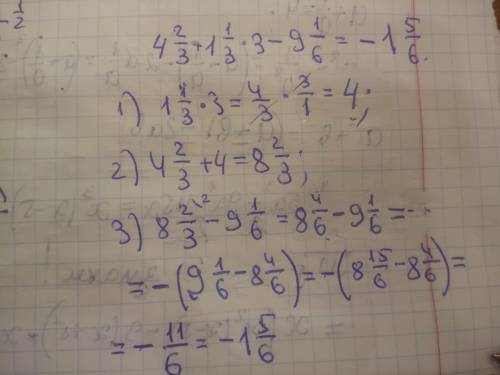 4 2/3 + 1 1/3 · 3 − 9 1/6 = − 1 5/6.
1) 1 1/3 · 3 = 4/3 · 3/1 = 4.
2) 4 2/3 + 4 = 8 2/3;
3) 8 2/3 \2 − 9 1/6 = 8 4/6 − 9 1/6 =
= − (9 1/6 − 8 4/6) = − (8 15/6 − 8 4/6) =
= − 11/6 = − 1 5/6